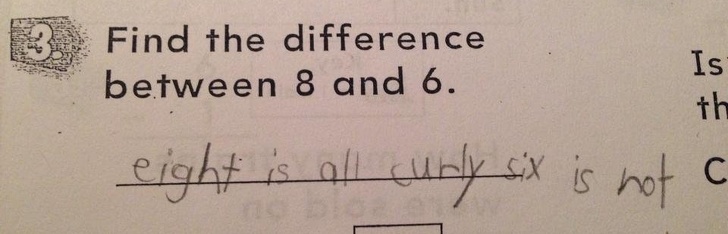 3. Find the difference
between 8 and 6.
eight is all curly six is not
Is
th
C